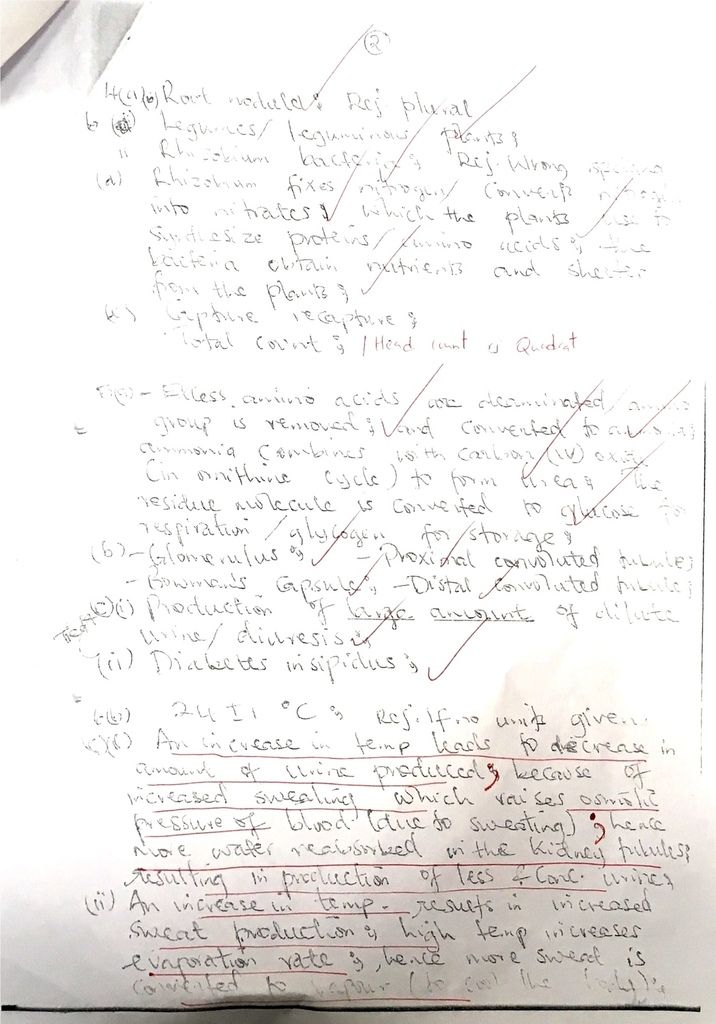 2
4(a)(i) Root nodule; Rej plural
b (i) Legumes/ leguminous plants;
ii Rhizobium bacteria; Rej. Wrong spelling
(d) Rhizobium fixes nitrogen/ Converts
into nitrates; which the plants use to
synthesize proteins/ amino acids; the
bacteria obtain nutrients and shelter
from the plants;
(e) Capture recapture;
Total count; /Head count Quadrat
- Excess amino acids are deaminated/ amino
group is removed; and converted to ammonia;
ammonia combines with carbon (IV) oxide
(in ornithine cycle) to form urea; The
residue molecule is converted to glucose for
respiration /glycogen for storage;
(b) - Glomerulus; - Proximal convoluted tubule;
- Bowman's Capsule; - Distal convoluted tubule;
c)(i) Production of large amount of dilute
urine/ diuresis;
(ii) Diabetes insipidus;
(b) 24 ±1 °C; Rej. If no units given.
c)(i) An increase in temp leads to decrease in
amount of urine produced; because of
increased sweating which raises osmotic
pressure of blood (due to sweating); hence
more water reabsorbed in the kidney tubules;
resulting in production of less & conc. urine;
(ii) An increase in temp. results in increased
sweat production; high temp increases
evaporation rate; hence more sweat is
converted to vapour (to cool the body);